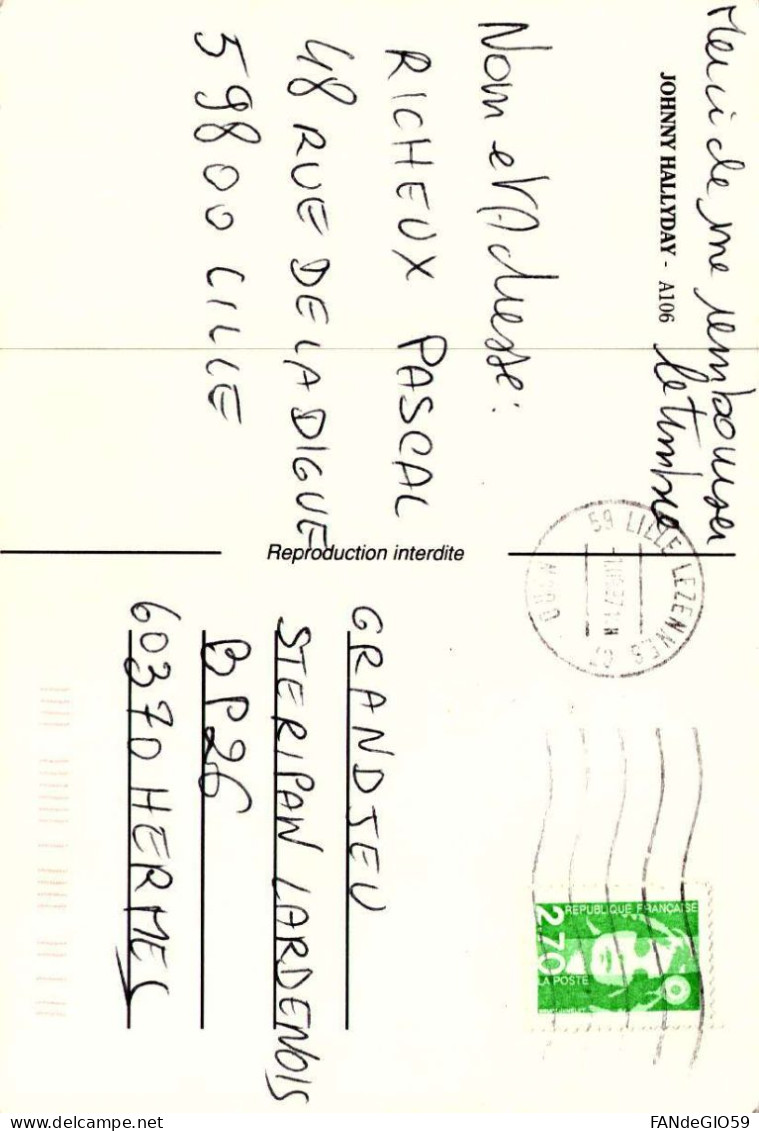 Merci de me rembourser
le timbre
JOHNNY HALLYDAY - A106
Nom et Adresse :
RICHEUX PASCAL
48 RUE DE LA DIGUE
59800 LILLE
Reproduction interdite
59 LILLE LEZENNES
NORD
REPUBLIQUE FRANÇAISE
2,70
LA POSTE
GRAND JEU
STERIPAN LARDENOIS
BP26
60370 HERMES
FANdeGIO59